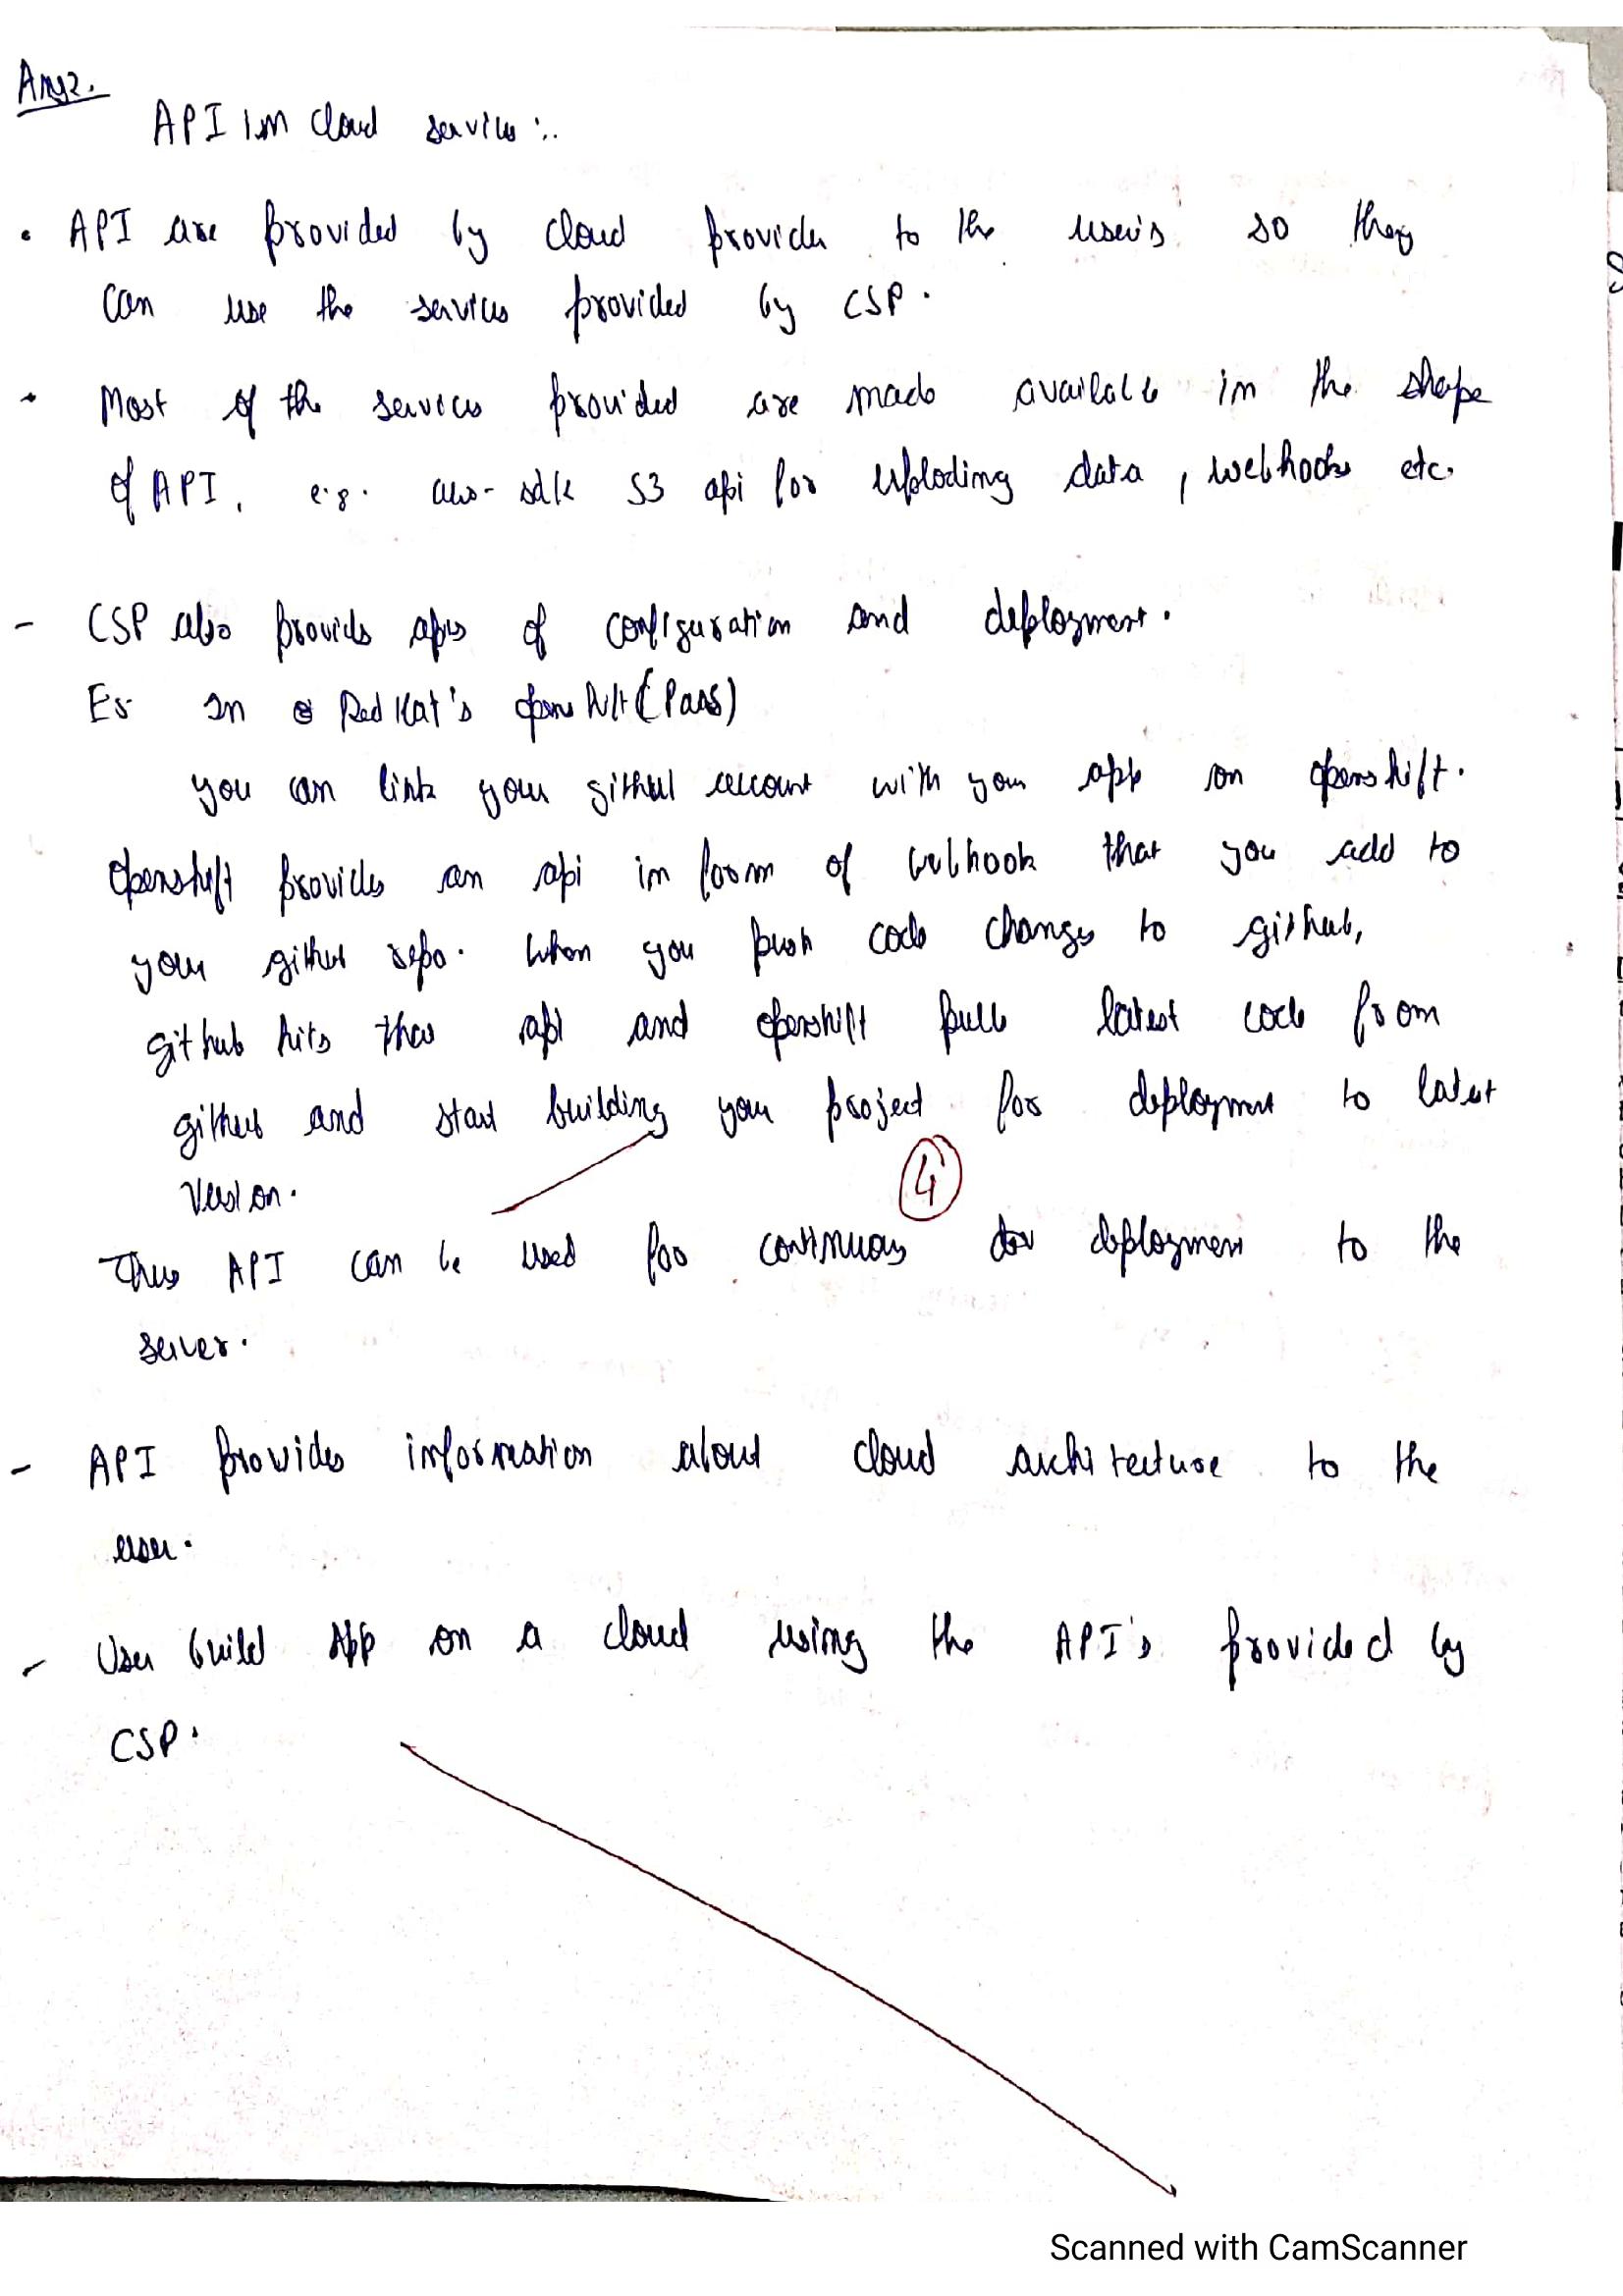 Ans2.
API in Cloud service :.
• API are provided by cloud provider to the users so they
can use the services provided by CSP.
• Most of the services provided are made available in the shape
of API, e.g. aws-sdk S3 api for uploding data, webhooks etc.
- CSP also provids apis of configuration and deployment.
Eg In RedHat's openshift (Paas)
you can link your github account with your app on openshift.
Openshift provides an api in form of webhook that you add to
your github repo. When you push code changes to github,
github hits the api and openshift pulls latest code from
github and start building your project for deployment to latest
version.
4
Thus API can be used for continuous deployment to the
server.
- API provides information about cloud architecture to the
user.
- User build App on a cloud using the API's provided by
CSP.
Scanned with CamScanner